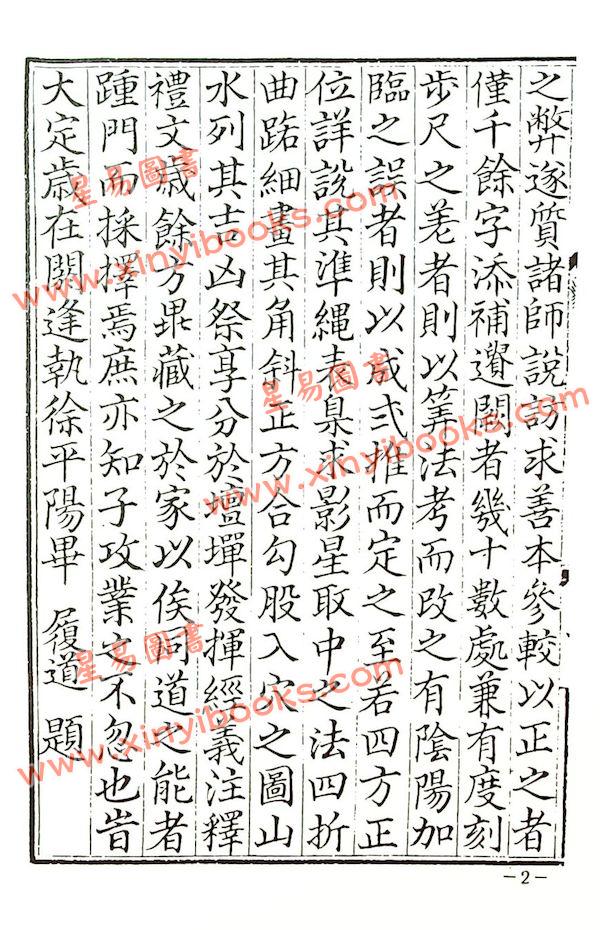 之弊遂質諸師說訪求善本參較以正之者
僅千餘字添補遺闕者幾十數處兼有度刻
步尺之差者則以筭法考而改之有陰陽加
臨之誤者則以成式推而定之至若四方正
位詳說其準繩表臬求影星取中之法四折
曲路細畫其角斜正方合勾股入穴之圖山
水列其吉凶祭享分於壇墠發揮經義注釋
禮文歲餘方畢藏之於家以俟同道之能者
踵門而採擇焉庶亦知予攻業之不忽也旹
大定歲在閼逢執徐平陽畢履道題
星易圖書
www.xinyibooks.com
星易圖書
www.xinyibooks.com
星易圖書
www.xinyibooks.com
-2-